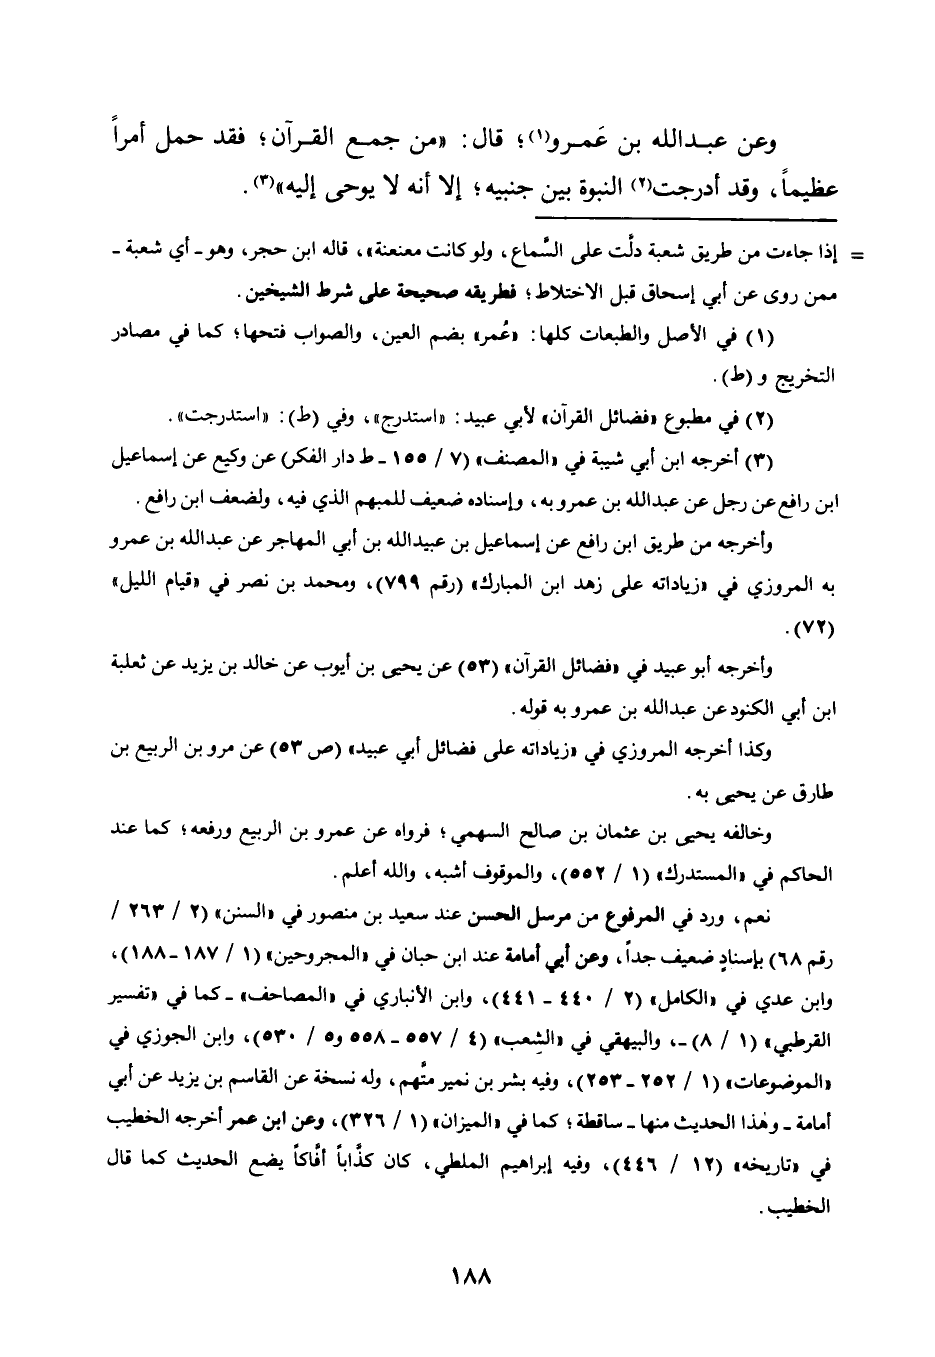 وعن عبدالله بن عَمرو(١)؛ قال: «من جمع القرآن؛ فقد حمل أمراً
عظيماً، وقد أدرجت(٢) النبوة بين جنبيه؛ إلا أنه لا يوحى إليه»(٣).
= إذا جاءت من طريق شعبة دلَّت على السَّماع، ولو كانت معنعنة»، قاله ابن حجر، وهو ـ أي شعبة ـ
ممن روى عن أبي إسحاق قبل الاختلاط؛ فطريقه صحيحة على شرط الشيخين.
(١) في الأصل والطبعات كلها: «عُمر» بضم العين، والصواب فتحها؛ كما في مصادر
التخريج و (ط).
(٢) في مطبوع «فضائل القرآن» لأبي عبيد: «استدرج»، وفي (ط): «استدرجت».
(٣) أخرجه ابن أبي شيبة في «المصنف» (٧ / ١٥٥ ـ ط دار الفكر) عن وكيع عن إسماعيل
ابن رافع عن رجل عن عبدالله بن عمرو به، وإسناده ضعيف للمبهم الذي فيه، ولضعف ابن رافع.
وأخرجه من طريق ابن رافع عن إسماعيل بن عبيدالله بن أبي المهاجر عن عبدالله بن عمرو
به المروزي في «زياداته على زهد ابن المبارك» (رقم ٧٩٩)، ومحمد بن نصر في «قيام الليل»
(٧٢).
وأخرجه أبو عبيد في «فضائل القرآن» (٥٣) عن يحيى بن أيوب عن خالد بن يزيد عن ثعلبة
ابن أبي الكنود عن عبدالله بن عمرو به قوله.
وكذا أخرجه المروزي في «زياداته على فضائل أبي عبيد» (ص ٥٣) عن مرو بن الربيع بن
طارق عن يحيى به.
وخالفه يحيى بن عثمان بن صالح السهمي؛ فرواه عن عمرو بن الربيع ورفعه؛ كما عند
الحاكم في «المستدرك» (١ / ٥٥٢)، والموقوف أشبه، والله أعلم.
نعم، ورد في المرفوع من مرسل الحسن عند سعيد بن منصور في «السنن» (٢ / ٢٦٣ /
رقم ٦٨) بإسنادٍ ضعيف جداً، وعن أبي أمامة عند ابن حبان في «المجروحين» (١ / ١٨٧ ـ ١٨٨)،
وابن عدي في «الكامل» (٢ / ٤٤٠ ـ ٤٤١)، وابن الأنباري في «المصاحف» ـ كما في «تفسير
القرطبي» (١ / ٨) ـ، والبيهقي في «الشعب» (٤ / ٥٥٧ ـ ٥٥٨ و٥ / ٥٣٠)، وابن الجوزي في
«الموضوعات» (١ / ٢٥٢ ـ ٢٥٣)، وفيه بشر بن نمير متَّهم، وله نسخة عن القاسم بن يزيد عن أبي
أمامة ـ وهٰذا الحديث منها ـ ساقطة؛ كما في «الميزان» (١ / ٣٢٦)، وعن ابن عمر أخرجه الخطيب
في «تاريخه» (١٢ / ٤٤٦)، وفيه إبراهيم الملطي، كان كذَّاباً أفَّاكاً يضع الحديث كما قال
الخطيب.
١٨٨